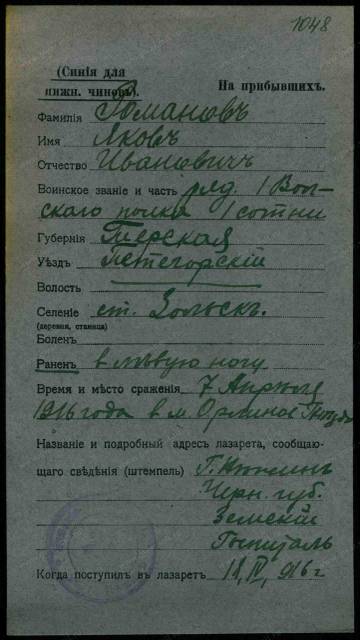 1048
(Синія для
нижн. чиновъ).
На прибывшихъ.
Фамилія Романовъ
Имя Яковъ
Отчество Ивановичъ
Воинское званіе и часть ряд. 1 Вол-
скаго полка 1 сотни
Губернія Терская
Уѣздъ Петегорскій
Волость
Селеніе ст. Зольск.
(деревня, станица)
Боленъ
Раненъ в лѣвую ногу
Время и мѣсто сраженія 7 Апрѣля
1916 года в м. Орлиное Гнѣздо
Названіе и подробный адресъ лазарета, сообщаю-
щаго свѣдѣнія (штемпель) Г. Нѣжинъ
Черн. губ.
Земскій
Госпиталь
Когда поступилъ въ лазаретъ 18, IV, 916 г